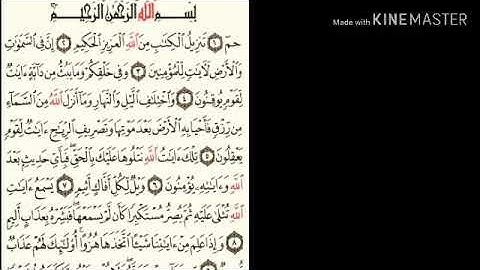 بِسْمِ اللَّهِ الرَّحْمَٰنِ الرَّحِيمِ
حمٓ ١ تَنزِيلُ الْكِتَابِ مِنَ اللَّهِ الْعَزِيزِ الْحَكِيمِ ٢ إِنَّ فِي السَّمَٰوَٰتِ
وَالْأَرْضِ لَآيَٰتٍ لِّلْمُؤْمِنِينَ ٣ وَفِي خَلْقِكُمْ وَمَا يَبُثُّ مِن دَآبَّةٍ ءَايَٰتٌ
لِّقَوْمٍ يُوقِنُونَ ٤ وَاخْتِلَٰفِ الَّيْلِ وَالنَّهَارِ وَمَآ أَنزَلَ اللَّهُ مِنَ السَّمَآءِ
مِن رِّزْقٍ فَأَحْيَا بِهِ الْأَرْضَ بَعْدَ مَوْتِهَا وَتَصْرِيفِ الرِّيَٰحِ ءَايَٰتٌ لِّقَوْمٍ
يَعْقِلُونَ ٥ تِلْكَ ءَايَٰتُ اللَّهِ نَتْلُوهَا عَلَيْكَ بِالْحَقِّ فَبِأَيِّ حَدِيثٍ بَعْدَ
اللَّهِ وَءَايَٰتِهِ يُؤْمِنُونَ ٦ وَيْلٌ لِّكُلِّ أَفَّاكٍ أَثِيمٍ ٧ يَسْمَعُ ءَايَٰتِ
اللَّهِ تُتْلَىٰ عَلَيْهِ ثُمَّ يُصِرُّ مُسْتَكْبِرًا كَأَن لَّمْ يَسْمَعْهَا فَبَشِّرْهُ بِعَذَابٍ أَلِيمٍ
٨ وَإِذَا عَلِمَ مِنْ ءَايَٰتِنَا شَيْـًٔا اتَّخَذَهَا هُزُوًا أُو۟لَٰٓئِكَ لَهُمْ عَذَابٌ
Made with KINEMASTER